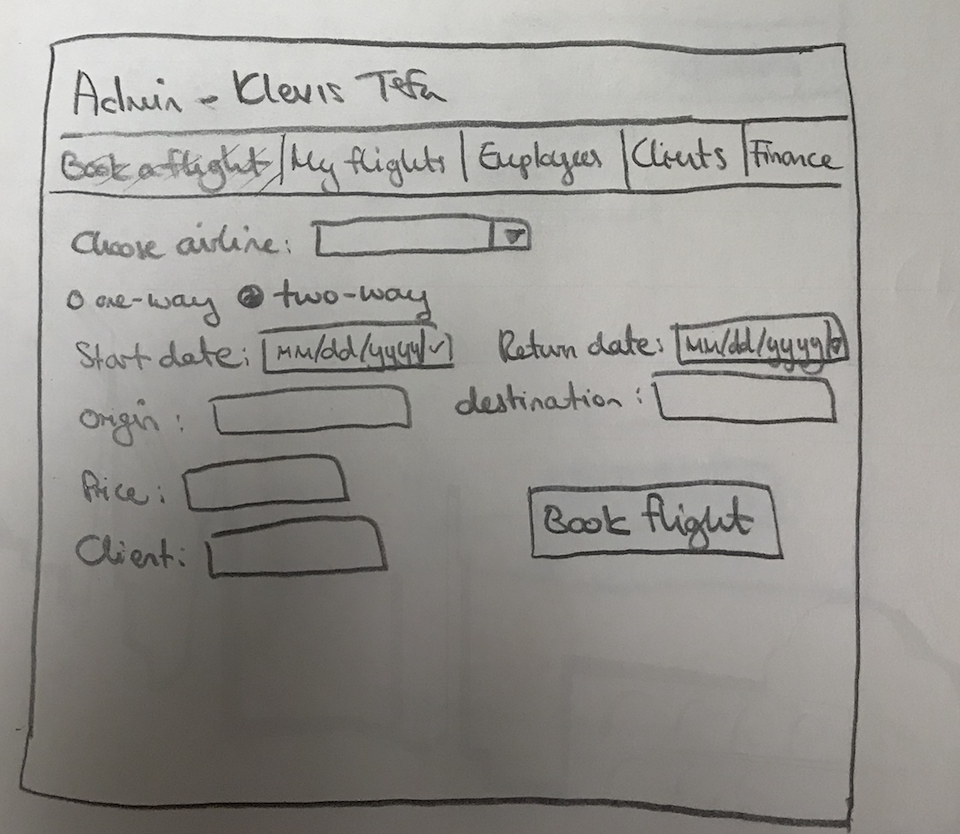 Admin - Klevis Tefa
Book a flight My flights Employees Clients Finance
Choose airline:
one-way two-way
Start date: MM/dd/yyyy Return date: MM/dd/yyyy
Origin: destination:
Price:
Book flight
Client: